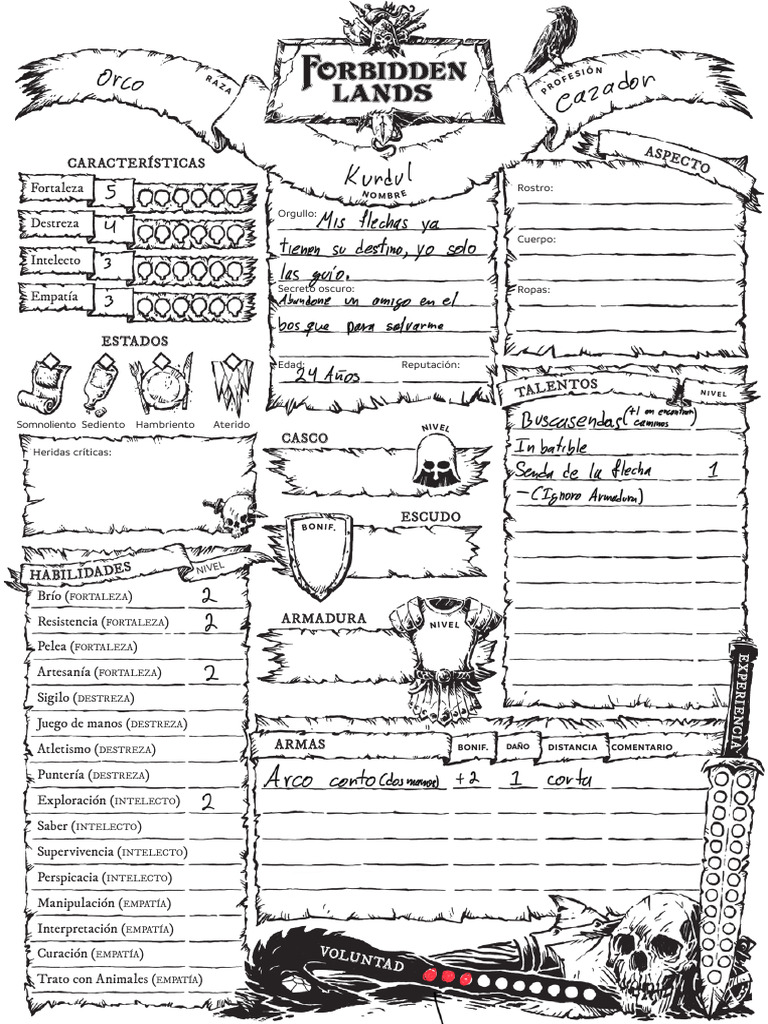 FORBIDDEN
LANDS
Orco
RAZA
PROFESIÓN
Cazador
Kurdul
NOMBRE
CARACTERÍSTICAS
Fortaleza 5
Destreza 4
Intelecto 3
Empatía 3
ESTADOS
Somnoliento Sediento Hambriento Aterido
Heridas críticas:
Orgullo: Mis flechas ya
tienen su destino, yo solo
las guío.
Secreto oscuro:
Abandone un amigo en el
bosque para salvarme
Edad: Reputación:
24 Años
ASPECTO
Rostro:
Cuerpo:
Ropas:
TALENTOS NIVEL
Buscasendas (+1 en encontrar
caminos)
Inbatible
Senda de la flecha 1
-(Ignora Armadura)
CASCO
NIVEL
ESCUDO
BONIF.
ARMADURA
NIVEL
HABILIDADES NIVEL
Brío (FORTALEZA) 2
Resistencia (FORTALEZA) 2
Pelea (FORTALEZA)
Artesanía (FORTALEZA) 2
Sigilo (DESTREZA)
Juego de manos (DESTREZA)
Atletismo (DESTREZA)
Puntería (DESTREZA)
Exploración (INTELECTO) 2
Saber (INTELECTO)
Supervivencia (INTELECTO)
Perspicacia (INTELECTO)
Manipulación (EMPATÍA)
Interpretación (EMPATÍA)
Curación (EMPATÍA)
Trato con Animales (EMPATÍA)
ARMAS BONIF. DAÑO DISTANCIA COMENTARIO
Arco corto (dos manos) +2 1 corta
EXPERIENCIA
VOLUNTAD